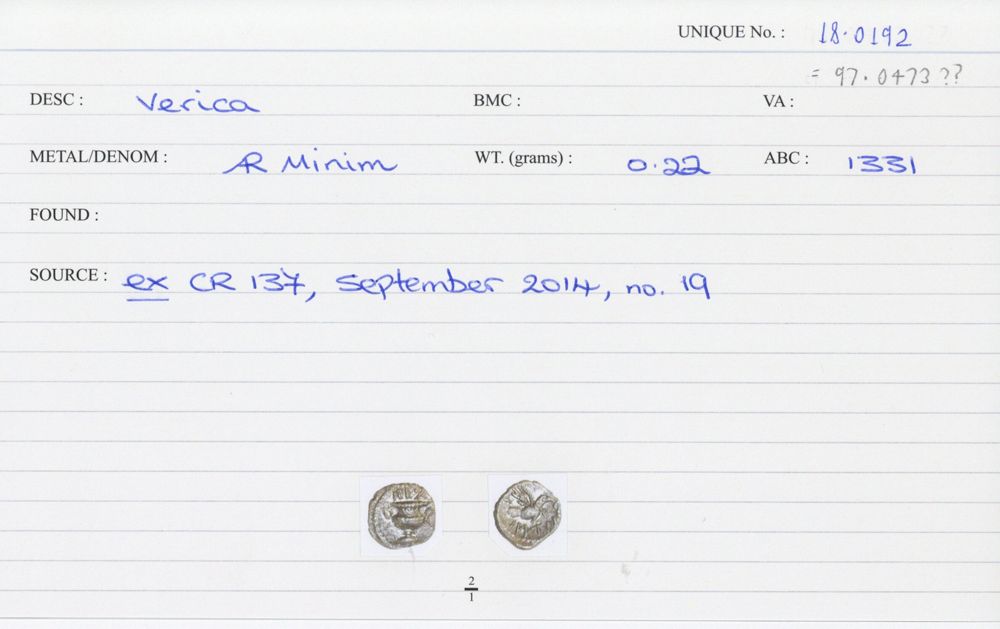 UNIQUE No. : 18·0192
= 97·0473??
DESC : Verica BMC : VA :
METAL/DENOM : AR Minim WT. (grams) : 0·22 ABC : 1331
FOUND :
SOURCE : ex CR 137, September 2014, no. 19
REX
2
1